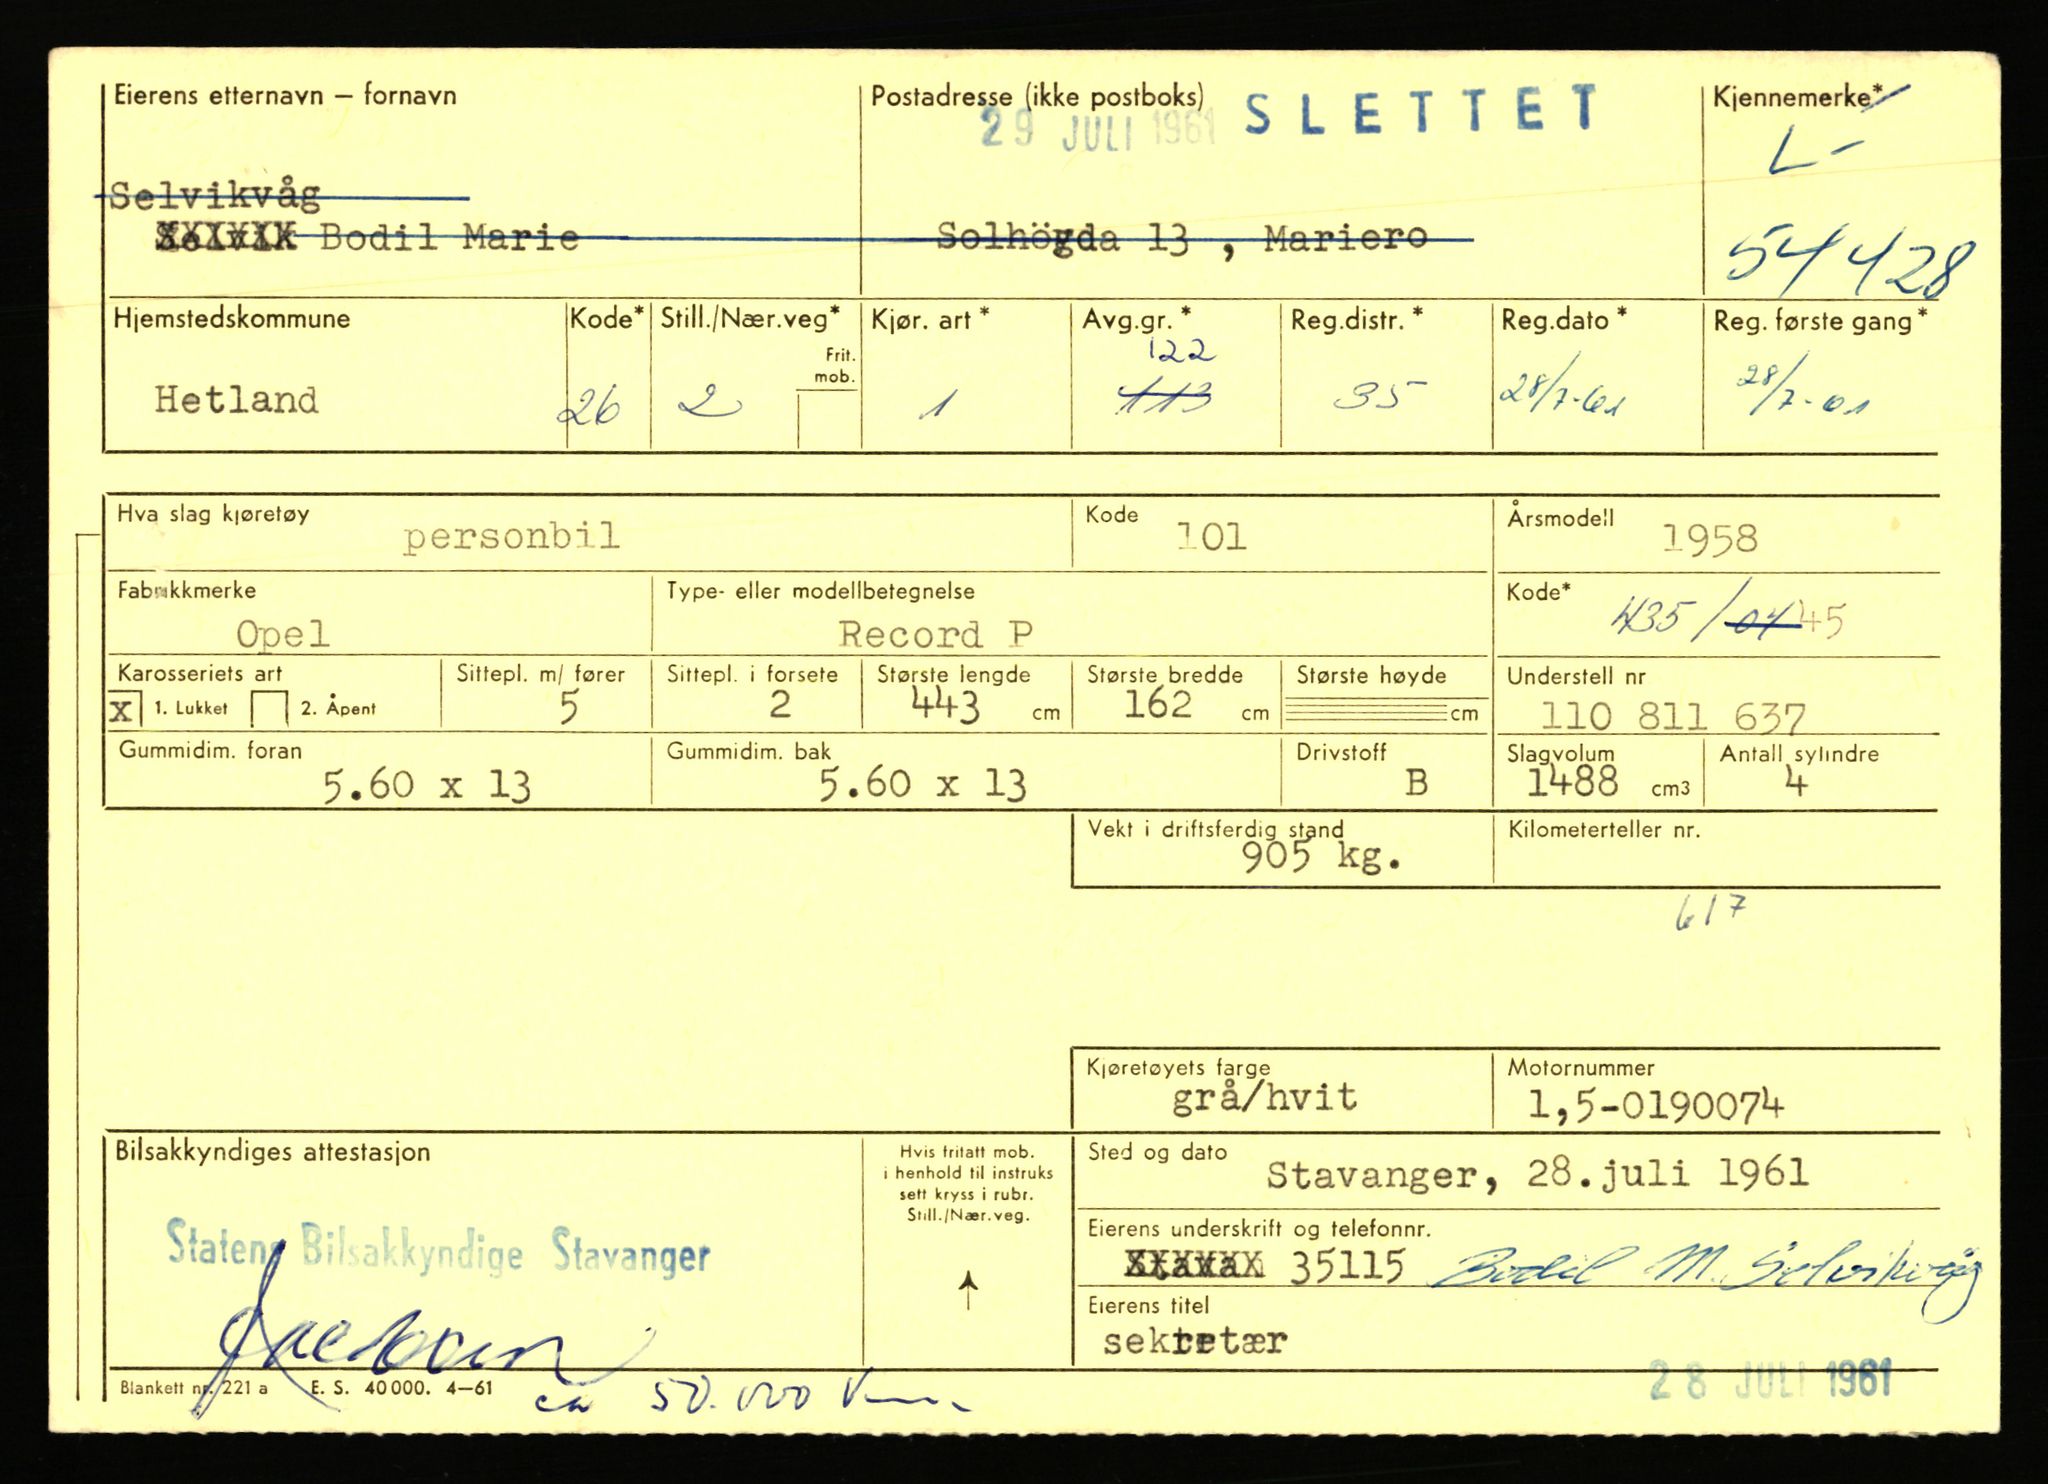 Eierens etternavn – fornavn
Postadresse (ikke postboks)
29 JULI 1961
SLETTET
Kjennemerke*
L-
Selvikvåg
Selvik Bodil Marie
Solhögda 13 , Mariero
54428
Hjemstedskommune
Kode*
Still./Nær.veg*
Frit. mob.
Kjør. art *
Avg.gr.*
Reg.distr.*
Reg.dato *
Reg. første gang*
122
Hetland
26
2
1
113
35
28/7-61
28/7-61
Hva slag kjøretøy
personbil
Kode
101
Årsmodell
1958
Fabrikkmerke
Opel
Type- eller modellbetegnelse
Record P
Kode*
435/04 45
Karosseriets art
X 1. Lukket 2. Åpent
Sittepl. m/ fører
5
Sittepl. i forsete
2
Største lengde
443 cm
Største bredde
162 cm
Største høyde
cm
Understell nr
110 811 637
Gummidim. foran
5.60 x 13
Gummidim. bak
5.60 x 13
Drivstoff
B
Slagvolum
1488 cm3
Antall sylindre
4
Vekt i driftsferdig stand
905 kg.
Kilometerteller nr.
617
Kjøretøyets farge
grå/hvit
Motornummer
1,5-0190074
Bilsakkyndiges attestasjon
Statens Bilsakkyndige Stavanger
Hvis fritatt mob.
i henhold til instruks
sett kryss i rubr.
Still./Nær.veg.
Sted og dato
Stavanger, 28.juli 1961
Eierens underskrift og telefonnr.
Stavan 35115 Bodil M. Selvikvåg
Eierens titel
sekretær
28 JULI 1961
Blankett nr. 221 a E. S. 40000. 4–61
ca 50.000 km.